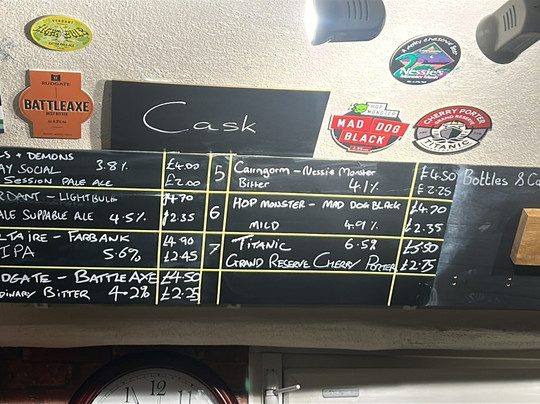 VERDANT
LIGHTBULB
EXTRA PALE ALE
RUDGATE
BATTLEAXE
BEST BITTER
Cask
Nessie's
Monster Mash
HOP
MONSTER
MAD DOG
BLACK
CHERRY PORTER
GRAND RESERVE
TITANIC
LS + DEMONS
AY SOCIAL 3.8% £4.00
SESSION PALE ALE £2.00
RDANT - LIGHTBULB £4.70
ALE SUPPABLE ALE 4.5% £2.35
LTAIRE - FARBANK £4.90
IPA 5.6% £2.45
DGATE - BATTLEAXE £4.50
DINARY BITTER 4.2% £2.25
5 Cairngorm - Nessie Monster £4.50
Bitter 4.1% £2.25
6 HOP MONSTER - MAD DOG BLACK £4.70
MILD 4.9% £2.35
7 TITANIC 6.5% £5.50
GRAND RESERVE CHERRY PORTER £2.75
Bottles & Ca
11 12 1
10 2